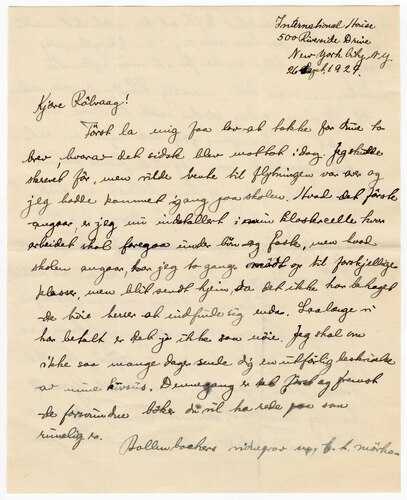 International House
500 Riverside Drive
New York City, N.Y.
26 Sept. 1927.
Kjære Rölvaag!
Först la mig faa lov at takke for dine to
brev, hvorav det sidste blev mottat i dag. Jeg skulde
skrevet för, men vilde vente til flytningen var over og
jeg hadde kommet igang paa skolen. Hvad det förste
angaar, er jeg nu installert i min klostercelle hvor
arbeidet skal foregaa under bön og faste, men hvad
skolen angaar, har jeg to ganger mödt op til forskjellige
klasser, men blit sendt hjem da det ikke har behaget
de höie herrer at indfinde sig enda. Saalænge vi
har betalt er det jo ikke som nöie. Jeg skal om
ikke saa mange dager sende dig en utförlig beskrivelse
av mine kursus. Dennegang er det först og fremst
de forsvundne böker du vil ha rede paa som
rimelig er.